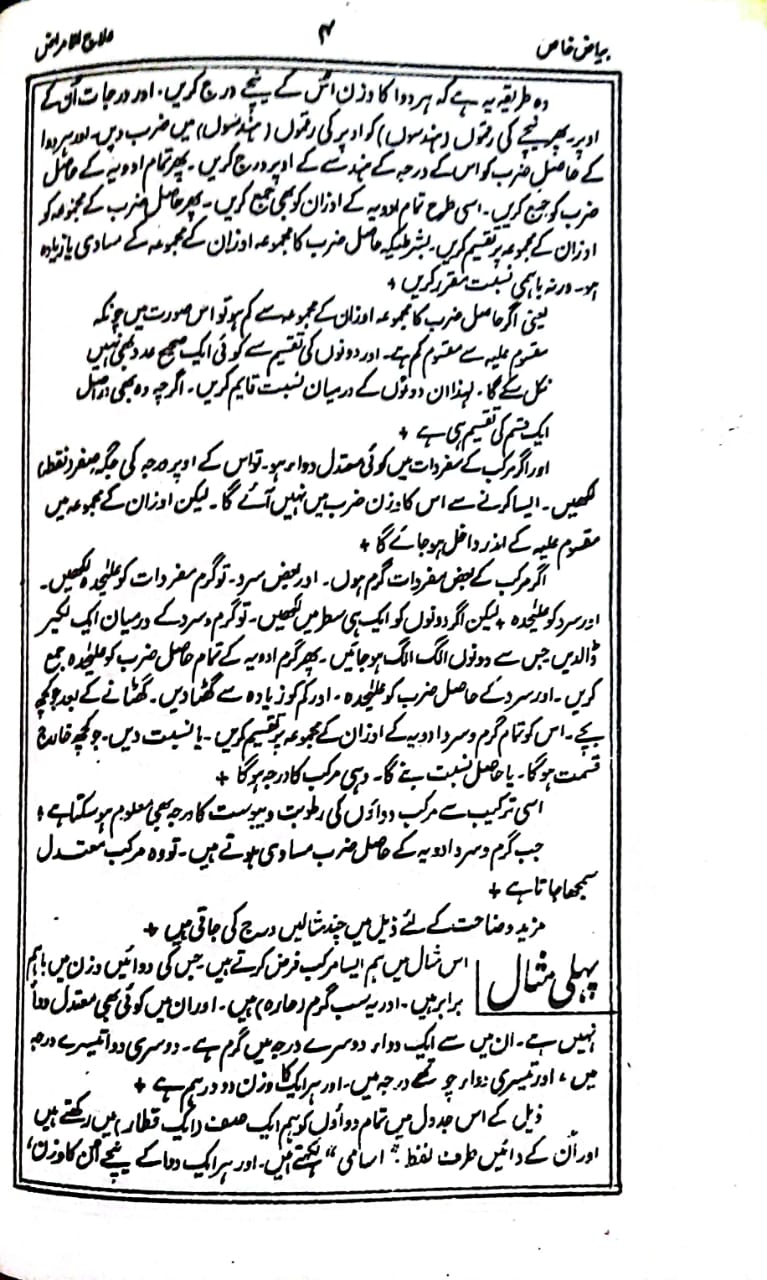 بیاض خاص
۴
علاج الامراض
وہ طریقہ یہ ہے کہ ہر دوا کا وزن اُس کے نیچے درج کریں۔ اور درجات اُن کے
اوپر، پھر نیچے کی رقموں (ہندسوں) کو اوپر کی رقموں (ہندسوں) میں ضرب دیں۔ اور ہر دوا
کے حاصل ضرب کو اس کے درجہ کے ہندسے کے اوپر درج کریں۔ پھر تمام ادویہ کے حاصل
ضرب کو جمع کریں۔ اسی طرح تمام ادویہ کے اوزان کو بھی جمع کریں۔ پھر حاصل ضرب کے مجموعہ کو
اوزان کے مجموعہ پر تقسیم کریں۔ بشرطیکہ حاصل ضرب کا مجموعہ اوزان کے مجموعہ کے مساوی یا زیادہ
ہو۔ ورنہ باہمی نسبت مقرر کریں +
یعنی اگر حاصل ضرب کا مجموعہ اوزان کے مجموعہ سے کم ہو تو اس صورت میں چونکہ
مقسوم علیہ سے مقسوم کم ہے۔ اور دونوں کی تقسیم سے کوئی ایک صحیح عدد بھی نہیں
نکل سکے گا۔ لہذا ان دونوں کے درمیان نسبت قایم کریں۔ اگرچہ وہ بھی دراصل
ایک قسم کی تقسیم ہی ہے +
اور اگر مرکب کے مفردات میں کوئی معتدل دواء ہو۔ تو اس کے اوپر درجہ کی جگہ صفر (نقطہ)
لکھیں۔ ایسا کرنے سے اس کا وزن ضرب میں نہیں آئے گا۔ لیکن اوزان کے مجموعہ میں
مقسوم علیہ کے اندر داخل ہو جائے گا +
اگر مرکب کے بعض مفردات گرم ہوں۔ اور بعض سرد۔ تو گرم مفردات کو علیٰحدہ لکھیں۔
اور سرد کو علیٰحدہ + لیکن اگر دونوں کو ایک ہی سطر میں لکھیں۔ تو گرم و سرد کے درمیان ایک لکیر
ڈالدیں جس سے دونوں الگ الگ ہو جائیں۔ پھر گرم ادویہ کے تمام حاصل ضرب کو علیٰحدہ جمع
کریں۔ اور سرد کے حاصل ضرب کو علیٰحدہ۔ اور کم کو زیادہ سے گھٹا دیں۔ گھٹانے کے بعد جو کچھ
بچے۔ اس کو تمام گرم و سرد ادویہ کے اوزان کے مجموعہ پر تقسیم کریں۔ یا نسبت دیں۔ جو کچھ خارج
قسمت ہو گا۔ یا حاصل نسبت بنے گا۔ وہی مرکب کا درجہ ہو گا +
اسی ترکیب سے مرکب دواؤں کی رطوبت و یبوست کا درجہ بھی معلوم ہو سکتا ہے +
جب گرم و سرد ادویہ کے حاصل ضرب مساوی ہوتے ہیں۔ تو وہ مرکب معتدل
سمجھا جاتا ہے +
مزید وضاحت کے لئے ذیل میں چند مثالیں درج کی جاتی ہیں +
پہلی مثال
اس مثال میں ہم ایسا مرکب فرض کرتے ہیں جس کی دوائیں وزن میں باہم
برابر ہیں۔ اور یہ سب گرم (حارہ) ہیں۔ اور ان میں کوئی بھی معتدل دوا
نہیں ہے۔ ان میں سے ایک دواء دوسرے درجہ میں گرم ہے۔ دوسری دوا تیسرے درجہ
میں، اور تیسری دواء چوتھے درجہ میں۔ اور ہر ایک کا وزن دو درہم ہے +
ذیل کے اس جدول میں تمام دواؤں کو ہم ایک صف (ایک قطار) میں رکھتے ہیں
اور اُن کے دائیں طرف لفظ "اسامی" لکھتے ہیں۔ اور ہر ایک دوا کے نیچے اُن کا وزن،